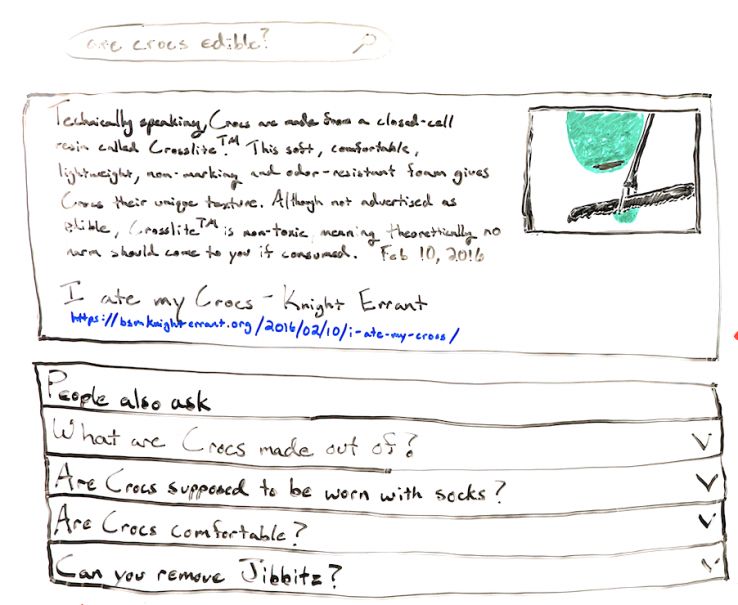 are crocs edible?
Technically speaking, Crocs are made from a closed-cell
resin called Crosslite™. This soft, comfortable,
lightweight, non-marking and odor-resistant foam gives
Crocs their unique texture. Although not advertised as
edible, Crosslite™ is non-toxic, meaning theoretically no
harm should come to you if consumed. Feb 10, 2016
I ate my Crocs - Knight Errant
https://bsmknighterrant.org/2016/02/10/i-ate-my-crocs/
People also ask
What are Crocs made out of?
Are Crocs supposed to be worn with socks?
Are Crocs comfortable?
Can you remove Jibbitz?